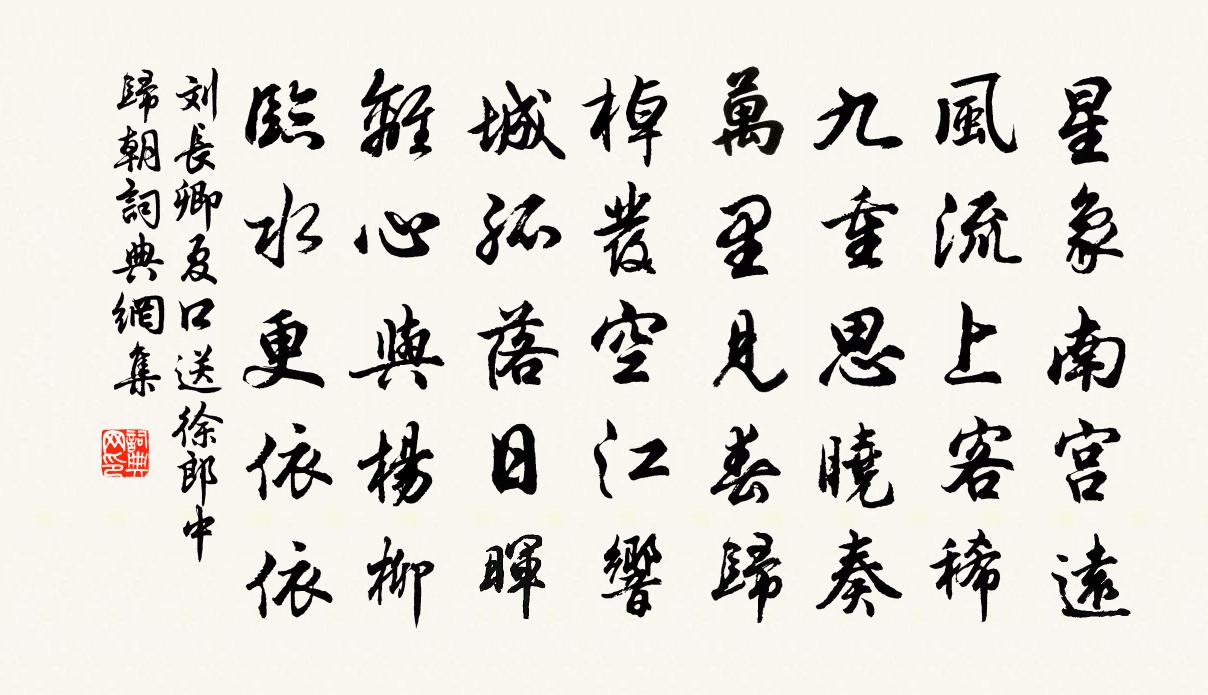 星象南宫遠
風流上客稀
九重思曉奏
萬里見春歸
棹發空江響
城孤落日暉
離心與楊柳
臨水更依依
刘長卿夏口送徐郎中
歸朝詞典網集
詞典
网印